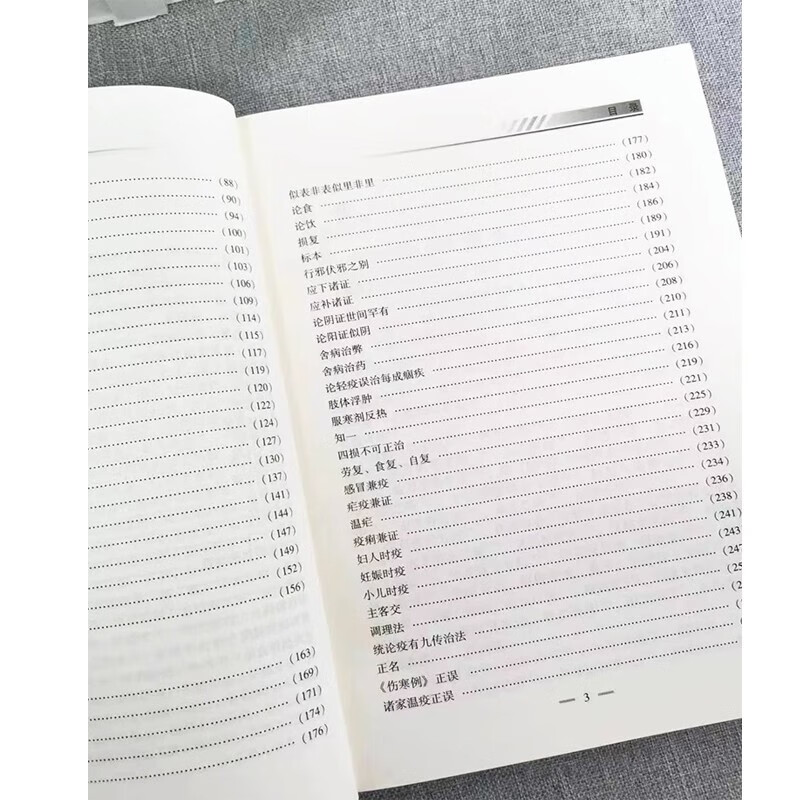 (88)
(90)
(94)
(100)
(101)
(103)
(106)
(109)
(114)
(115)
(117)
(119)
(120)
(122)
(124)
(127)
(130)
(137)
(141)
(144)
(147)
(149)
(152)
(156)
(163)
(169)
(171)
(174)
(176)
目 录
似表非表似里非里 (177)
论食 (180)
论饮 (182)
损复 (184)
标本 (186)
行邪伏邪之别 (189)
应下诸证 (191)
应补诸证 (204)
论阴证世间罕有 (206)
论阳证似阴 (208)
舍病治弊 (210)
舍病治药 (211)
论轻疫误治每成痼疾 (213)
肢体浮肿 (216)
服寒剂反热 (219)
知一 (221)
四损不可正治 (225)
劳复、食复、自复 (229)
感冒兼疫 (231)
疟疫兼证 (233)
温疟 (234)
疫痢兼证 (236)
妇人时疫 (238)
妊娠时疫 (241)
小儿时疫 (243
主客交 (247
调理法
统论疫有九传治法
正名
《伤寒例》正误
诸家温疫正误
3